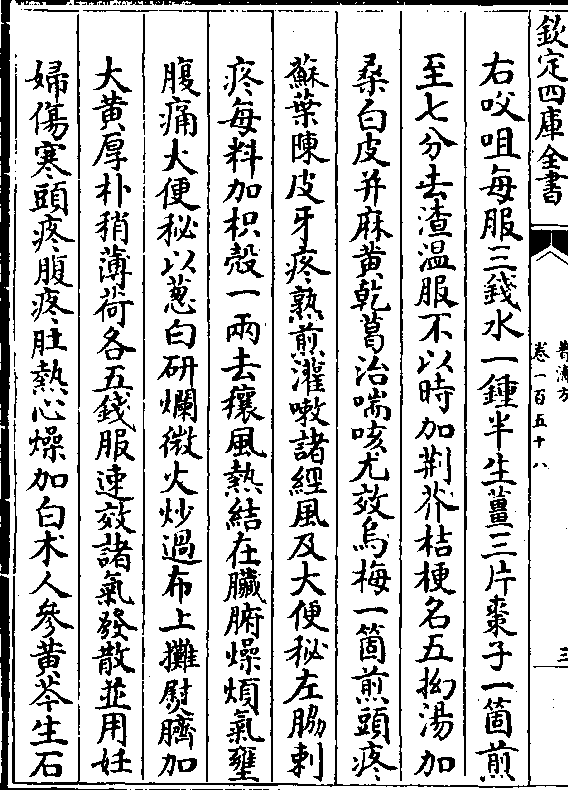 欽定四庫全書
普濟方
卷一百五十八
三
右㕮咀每服三錢水一鍾半生薑三片棗子一箇煎
至七分去渣溫服不以時加荆芥桔梗名五拗湯加
桑白皮并麻黄乾葛治喘咳尤效烏梅一箇煎頭疼
蘇葉陳皮牙疼熟煎灌嗽諸經風及大便秘左脇刺
疼每料加枳殼一兩去穰風熱結在臟腑燥煩氣壅
腹痛大便秘以葱白研爛微火炒過布上攤熨臍加
大黄厚朴稍薄荷各五錢服速效諸氣發散並用妊
婦傷寒頭疼腹疼肚熱心燥加白术人參黄芩生石